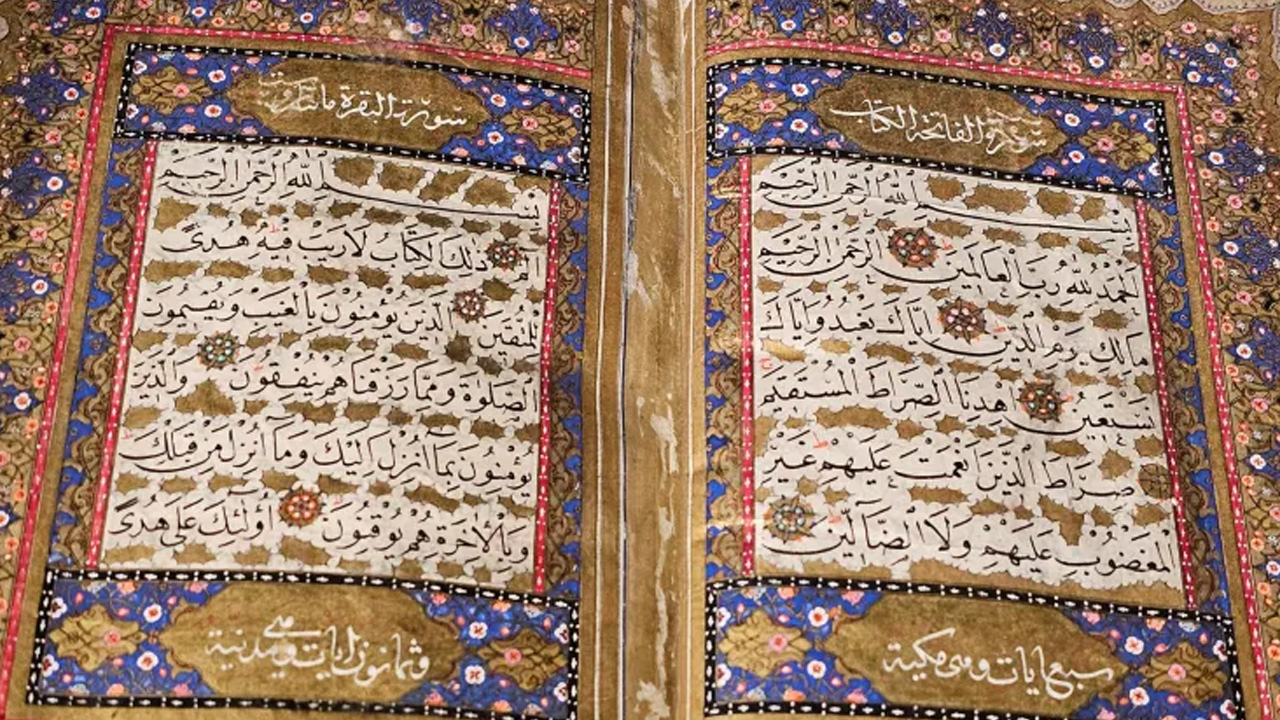 سورة الفاتحة الكتاب
بسم الله الرحمن الرحيم
الحمد لله رب العالمين الرحمن الرحيم
مالك يوم الدين إياك نعبد وإياك
نستعين اهدنا الصراط المستقيم
صراط الذين أنعمت عليهم غير
المغضوب عليهم ولا الضالين
سبع ايات وهي مكية
سورة البقرة مائتان وست
بِسْمِ اللهِ الرَّحْمٰنِ الرَّحِيْمِ
الم ذٰلِكَ الْكِتَابُ لَا رَيْبَ فِيْهِ هُدًى
لِلْمُتَّقِيْنَ الَّذِيْنَ يُؤْمِنُوْنَ بِالْغَيْبِ وَيُقِيْمُوْنَ
الصَّلٰوةَ وَمِمَّا رَزَقْنَاهُمْ يُنْفِقُوْنَ وَالَّذِيْنَ
يُؤْمِنُوْنَ بِمَا اُنْزِلَ اِلَيْكَ وَمَا اُنْزِلَ مِنْ قَبْلِكَ
وَبِالْاٰخِرَةِ هُمْ يُوْقِنُوْنَ اُولٰئِكَ عَلٰى هُدًى
وثمانون ايات وهي مدنية